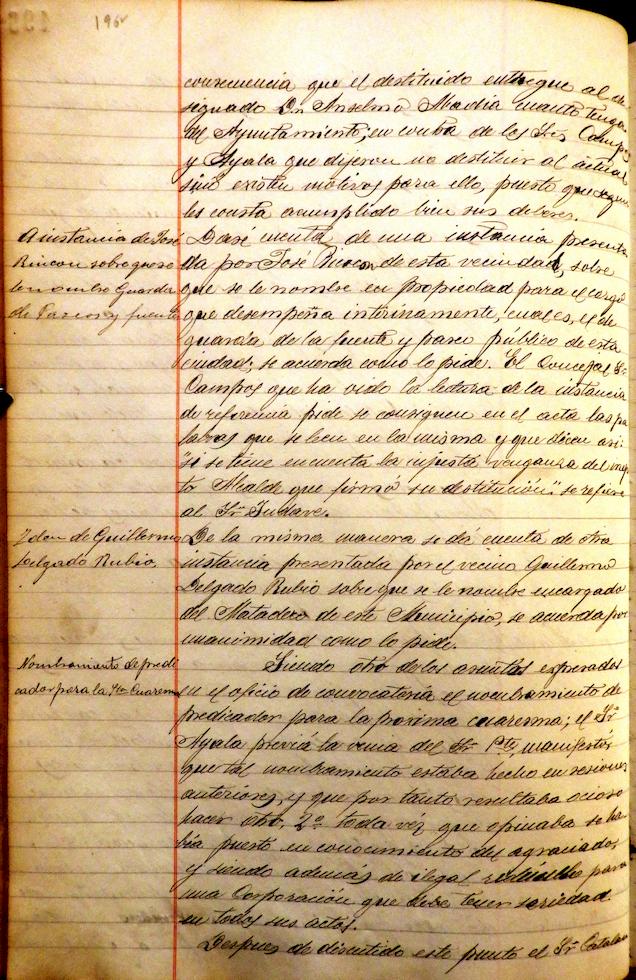 196
consecuencia que el destituido entregue al de
signado Dn Anselmo Madia cuanto tenga
del Ayuntamiento, en contra de los Srs Campos
y Ayala que dijeron no destituir al actual
sino existen motivos para ello, puesto que segun
les consta acumplido bien sus deberes.
A instancia de José
Rincon sobre que se
le nombre Guarda
de Paseos y fuente
Dasé cuenta de una instancia presenta
da por José Rincon de esta vecindad, sobre
que se le nombre en propiedad para el cargo
que desempeña interinamente, cual es, el de
guarda de la fuente y paseo público de esta
ciudad; se acuerda como lo pide. El Concejal Sr
Campos que ha oido la lectura de la instancia
de referencia pide se consignen en el acta las pa
labras que se leen en la misma y que dicen asi
"si se tiene en cuenta la injusta venganza del
to Alcalde que firmó su destitución" se refiere
al Sr
Ydem de Guillermo
Delgado Rubio.
De la misma manera se dá cuenta de otra
instancia presentada por el vecino Guillermo
Delgado Rubio sobre que se le nombre encargado
del Matadero de este Municipio, se acuerda por
unanimidad como lo pide.
Nombramiento de predi
cador para la Sta Cuaresma
Siendo otro de los asuntos espresados
en el oficio de convocatoria el nombramiento de
predicador para la proxima cuaresma; el Sr
Ayala previá la venia del Sr Pte, manifestó
que tal nombramiento estaba hecho en sesiones
anteriores, y que por tanto resultaba ocioso
hacer otro, toda véz que opinaba se ha
bía puesto en conocimiento del agraciado
y siendo además de ilegal para
una Corporación que debe tener seriedad
en todos sus actos.
Despues de discutido este punto el Sr Catalan